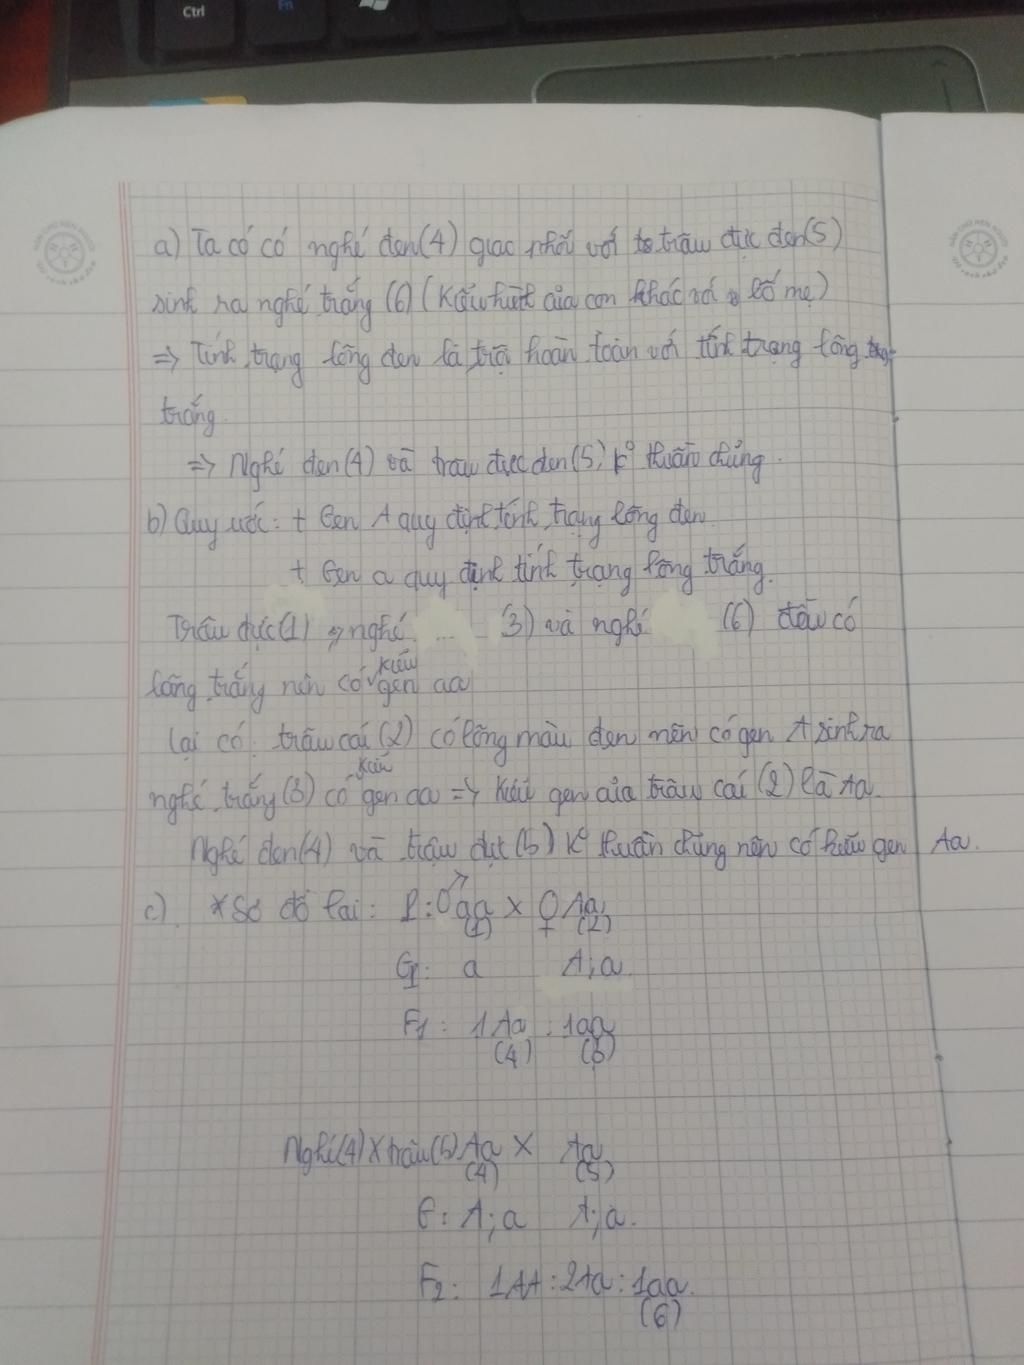 Ctrl
Fn
a) Ta có có nghé đen(4) giao phối với trâu đực đen(5)
sinh ra nghé trắng (6) (Kiểu hình của con khác với bố mẹ)
=> Tính trạng lông đen là trội hoàn toàn với tính trạng lông
trắng.
=> Nghé đen(4) và trâu đực đen(5) k° thuần chủng.
b) Quy ước: + Gen A quy định tính trạng lông đen
+ Gen a quy định tính trạng lông trắng.
Trâu đực(1) nghé ... 3) và nghé (6) đều có
lông trắng nên có kiểu gen aa
lại có: trâu cái (2) có lông màu đen nên có gen A sinh ra
nghé trắng(3) có kiểu gen aa => kiểu gen của trâu cái (2) là Aa.
Nghé đen(4) và trâu đực (5) k° thuần chủng nên có kiểu gen Aa.
c) *Sơ đồ lai: P: ♂ aa x ♀ Aa
(1) (2)
G: a A;a
F1: 1Aa : 1aa
(4) (3)
Nghé(4) x trâu(5) Aa x Aa
(4) (5)
G: A;a A;a.
F2: 1AA : 2Aa : 1aa.
(6)